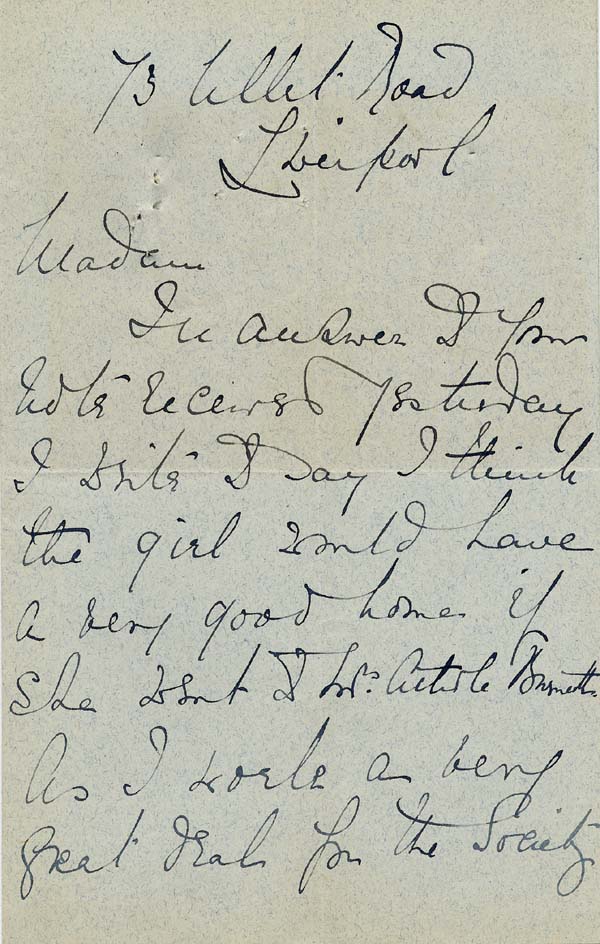 73 Ullet Road
Liverpool
Madam
In answer to your
note received yesterday
I write to say I think
the girl would have
a very good home if
she went to Mrs. Burnett.
As I work a very
great deal for the Society